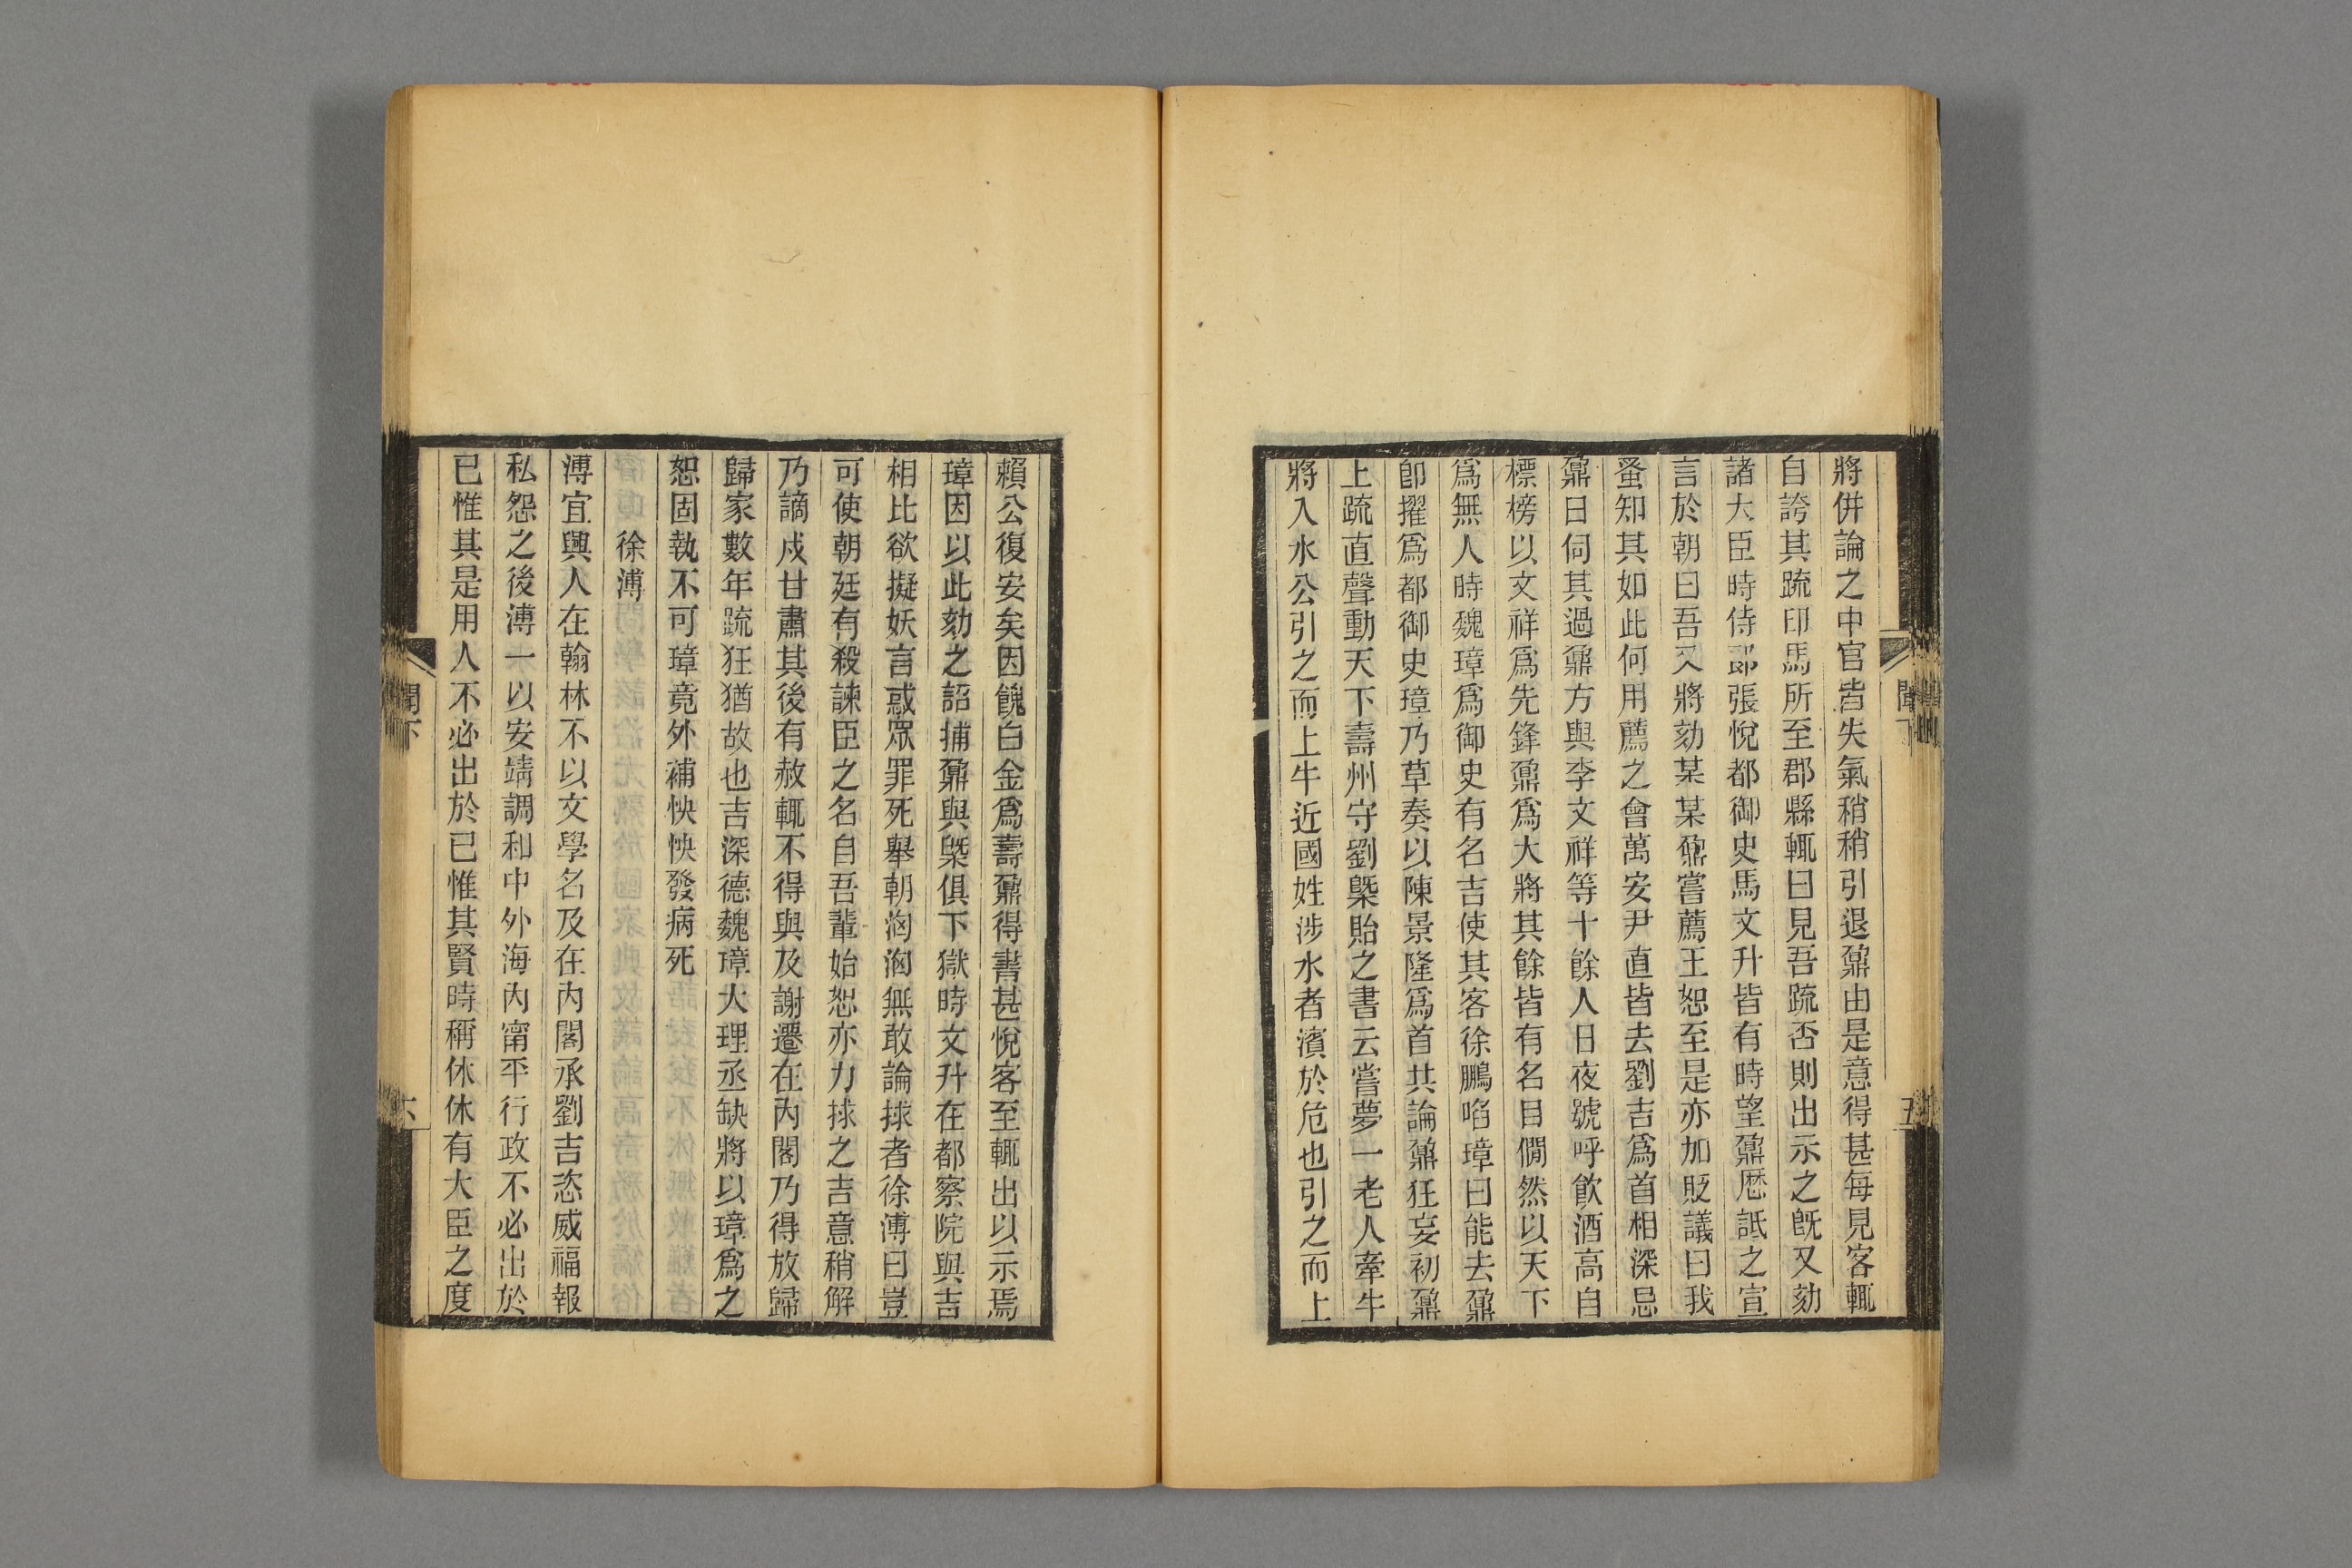 將併論之中官皆失氣稍稍引退鼐由是意得甚每見客輒
自誇其疏印馬所至郡縣輒曰見吾疏否則出示之旣又劾
諸大臣時侍郎張悅都御史馬文升皆有時望鼐厯詆之宣
言於朝曰吾又將劾某某鼐嘗薦王恕至是亦加貶議曰我
蚤知其如此何用薦之會萬安尹直皆去劉吉爲首相深忌
鼐日伺其過鼐方與李文祥等十餘人日夜號呼飮酒高自
標榜以文祥爲先鋒鼐爲大將其餘皆有名目僩然以天下
爲無人時魏璋爲御史有名吉使其客徐鵬啗璋曰能去鼐
卽擢爲都御史璋乃草奏以陳景隆爲首共論鼐狂妄初鼐
上疏直聲動天下壽州守劉槩貽之書云嘗夢一老人牽牛
將入水公引之而上牛近國姓涉水者濱於危也引之而上
聞下
五
賴公復安矣因餽白金爲壽鼐得書甚悅客至輒出以示焉
璋因以此劾之詔捕鼐與槩俱下獄時文升在都察院與吉
相比欲擬妖言惑眾罪死舉朝洶洶無敢論捄者徐溥曰豈
可使朝廷有殺諫臣之名自吾輩始恕亦力捄之吉意稍解
乃謫戍甘肅其後有赦輒不得與及謝遷在內閣乃得放歸
歸家數年疏狂猶故也吉深德魏璋大理丞缺將以璋爲之
恕固執不可璋竟外補怏怏發病死
徐溥
溥宜興人在翰林不以文學名及在內閣承劉吉恣威福報
私怨之後溥一以安靖調和中外海內甯平行政不必出於
已惟其是用人不必出於已惟其賢時稱休休有大臣之度
聞下
六